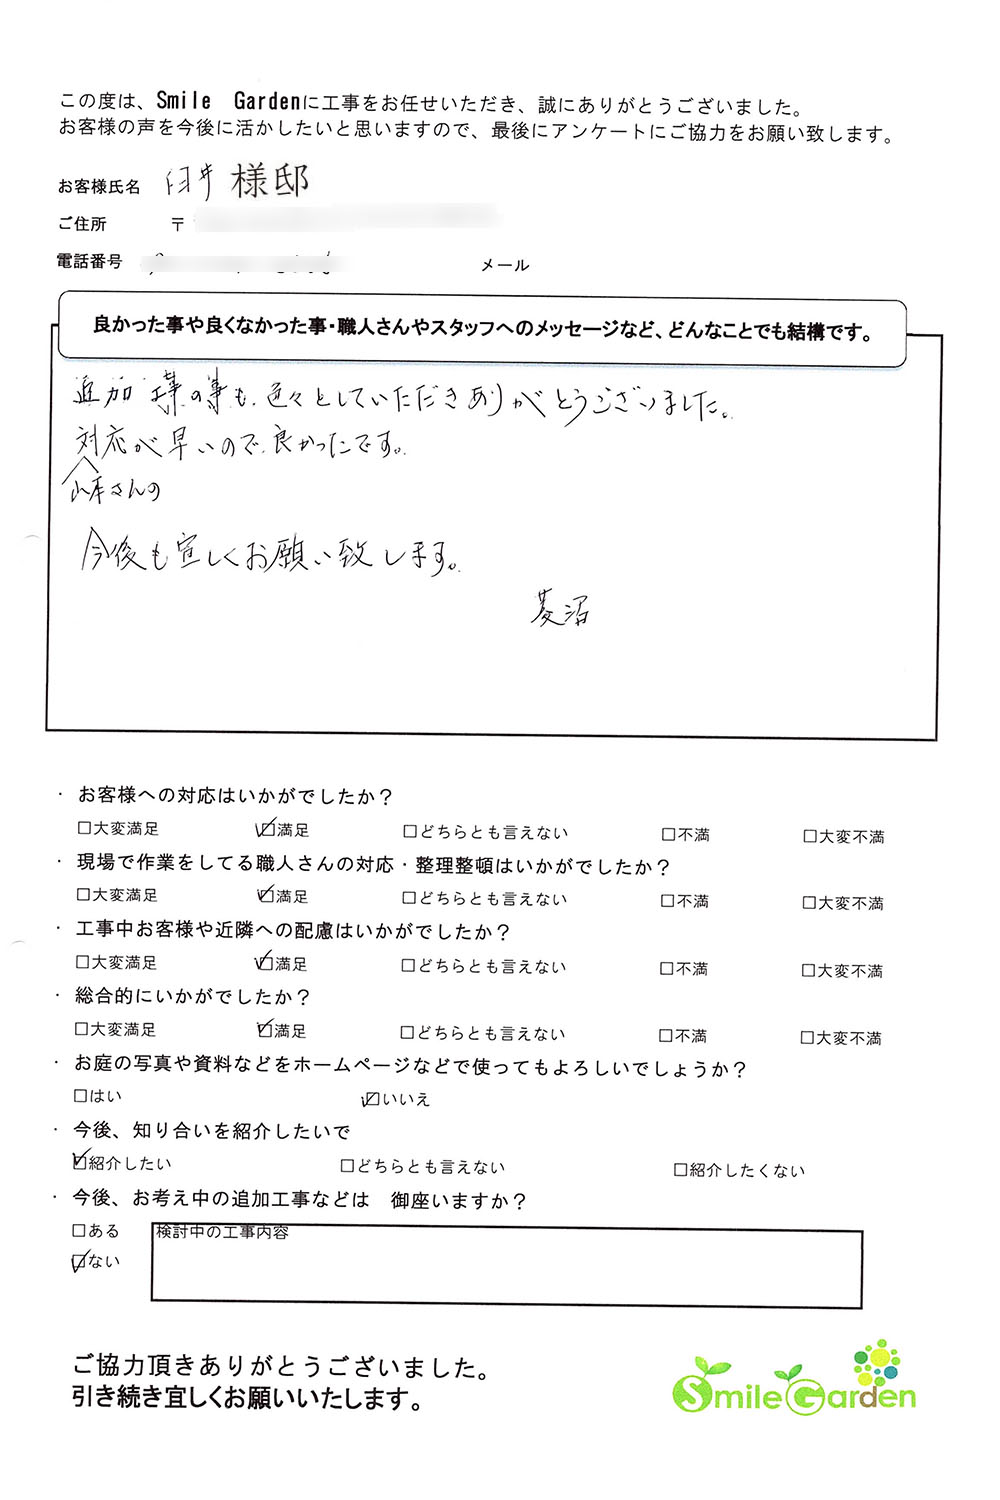 この度は、Smile Gardenに工事をお任せいただき、誠にありがとうございました。
お客様の声を今後に活かしたいと思いますので、最後にアンケートにご協力をお願い致します。
お客様氏名 臼井 様邸
ご住所 〒
電話番号 メール
良かった事や良くなかった事・職人さんやスタッフへのメッセージなど、どんなことでも結構です。
追加工事の事も、色々としていただきありがとうございました。
対応が早いので、良かったです。
山本さんの
今後も宜しくお願い致します。
菱沼
・ お客様への対応はいかがでしたか？
□大変満足 ☑満足 □どちらとも言えない □不満 □大変不満
・ 現場で作業をしてる職人さんの対応・整理整頓はいかがでしたか？
□大変満足 ☑満足 □どちらとも言えない □不満 □大変不満
・ 工事中お客様や近隣への配慮はいかがでしたか？
□大変満足 ☑満足 □どちらとも言えない □不満 □大変不満
・ 総合的にいかがでしたか？
□大変満足 ☑満足 □どちらとも言えない □不満 □大変不満
・ お庭の写真や資料などをホームページなどで使ってもよろしいでしょうか？
□はい ☑いいえ
・ 今後、知り合いを紹介したいで
☑紹介したい □どちらとも言えない □紹介したくない
・ 今後、お考え中の追加工事などは 御座いますか？
□ある 検討中の工事内容
☑ない
ご協力頂きありがとうございました。
引き続き宜しくお願いいたします。
Smile Garden